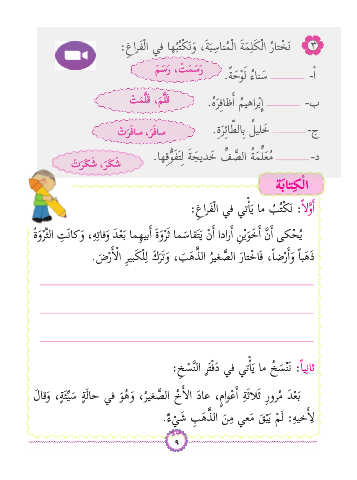 ٣ نَخْتارُ الْكَلِمَةَ الْمُناسِبَةَ، وَنَكْتُبُها في الْفَراغِ:
أ- ــــــــ سَناءُ لَوْحَةً. رَسَمَتْ، رَسَمَ
ب- ــــــــ إِبْراهيمُ أَظافِرَهُ. قَلَّمَ، قَلَّمَتْ
ج- ــــــــ خَليلٌ بِالطّائِرَةِ. سافَرَ، سافَرَتْ
د- ــــــــ مُعَلِّمَةُ الصَّفِّ خَديجَةَ لِتَفَوُّقِها. شَكَرَ، شَكَرَتْ
الْكِتابَة
أَوَّلاً: نَكْتُبُ ما يَأْتي في الْفَراغِ:
يُحْكى أَنَّ أَخَوَيْنِ أَرادا أَنْ يَتَقاسَما ثَرْوَةَ أَبيهِما بَعْدَ وَفاتِهِ، وَكانَتِ الثَّرْوَةُ
ذَهَباً وَأَرْضاً، فَاخْتارَ الصَّغيرُ الذَّهَبَ، وَتَرَكَ لِلْكَبيرِ الْأَرْضَ.
ثانِياً: نَنْسَخُ ما يَأْتي في دَفْتَرِ النَّسْخِ:
بَعْدَ مُرورِ ثَلاثَةِ أَعْوامٍ، عادَ الْأَخُ الصَّغيرُ، وَهُوَ في حالَةٍ سَيِّئَةٍ، وَقالَ
لِأَخيهِ: لَمْ يَبْقَ مَعي مِنَ الذَّهَبِ شَيْءٌ.
٩